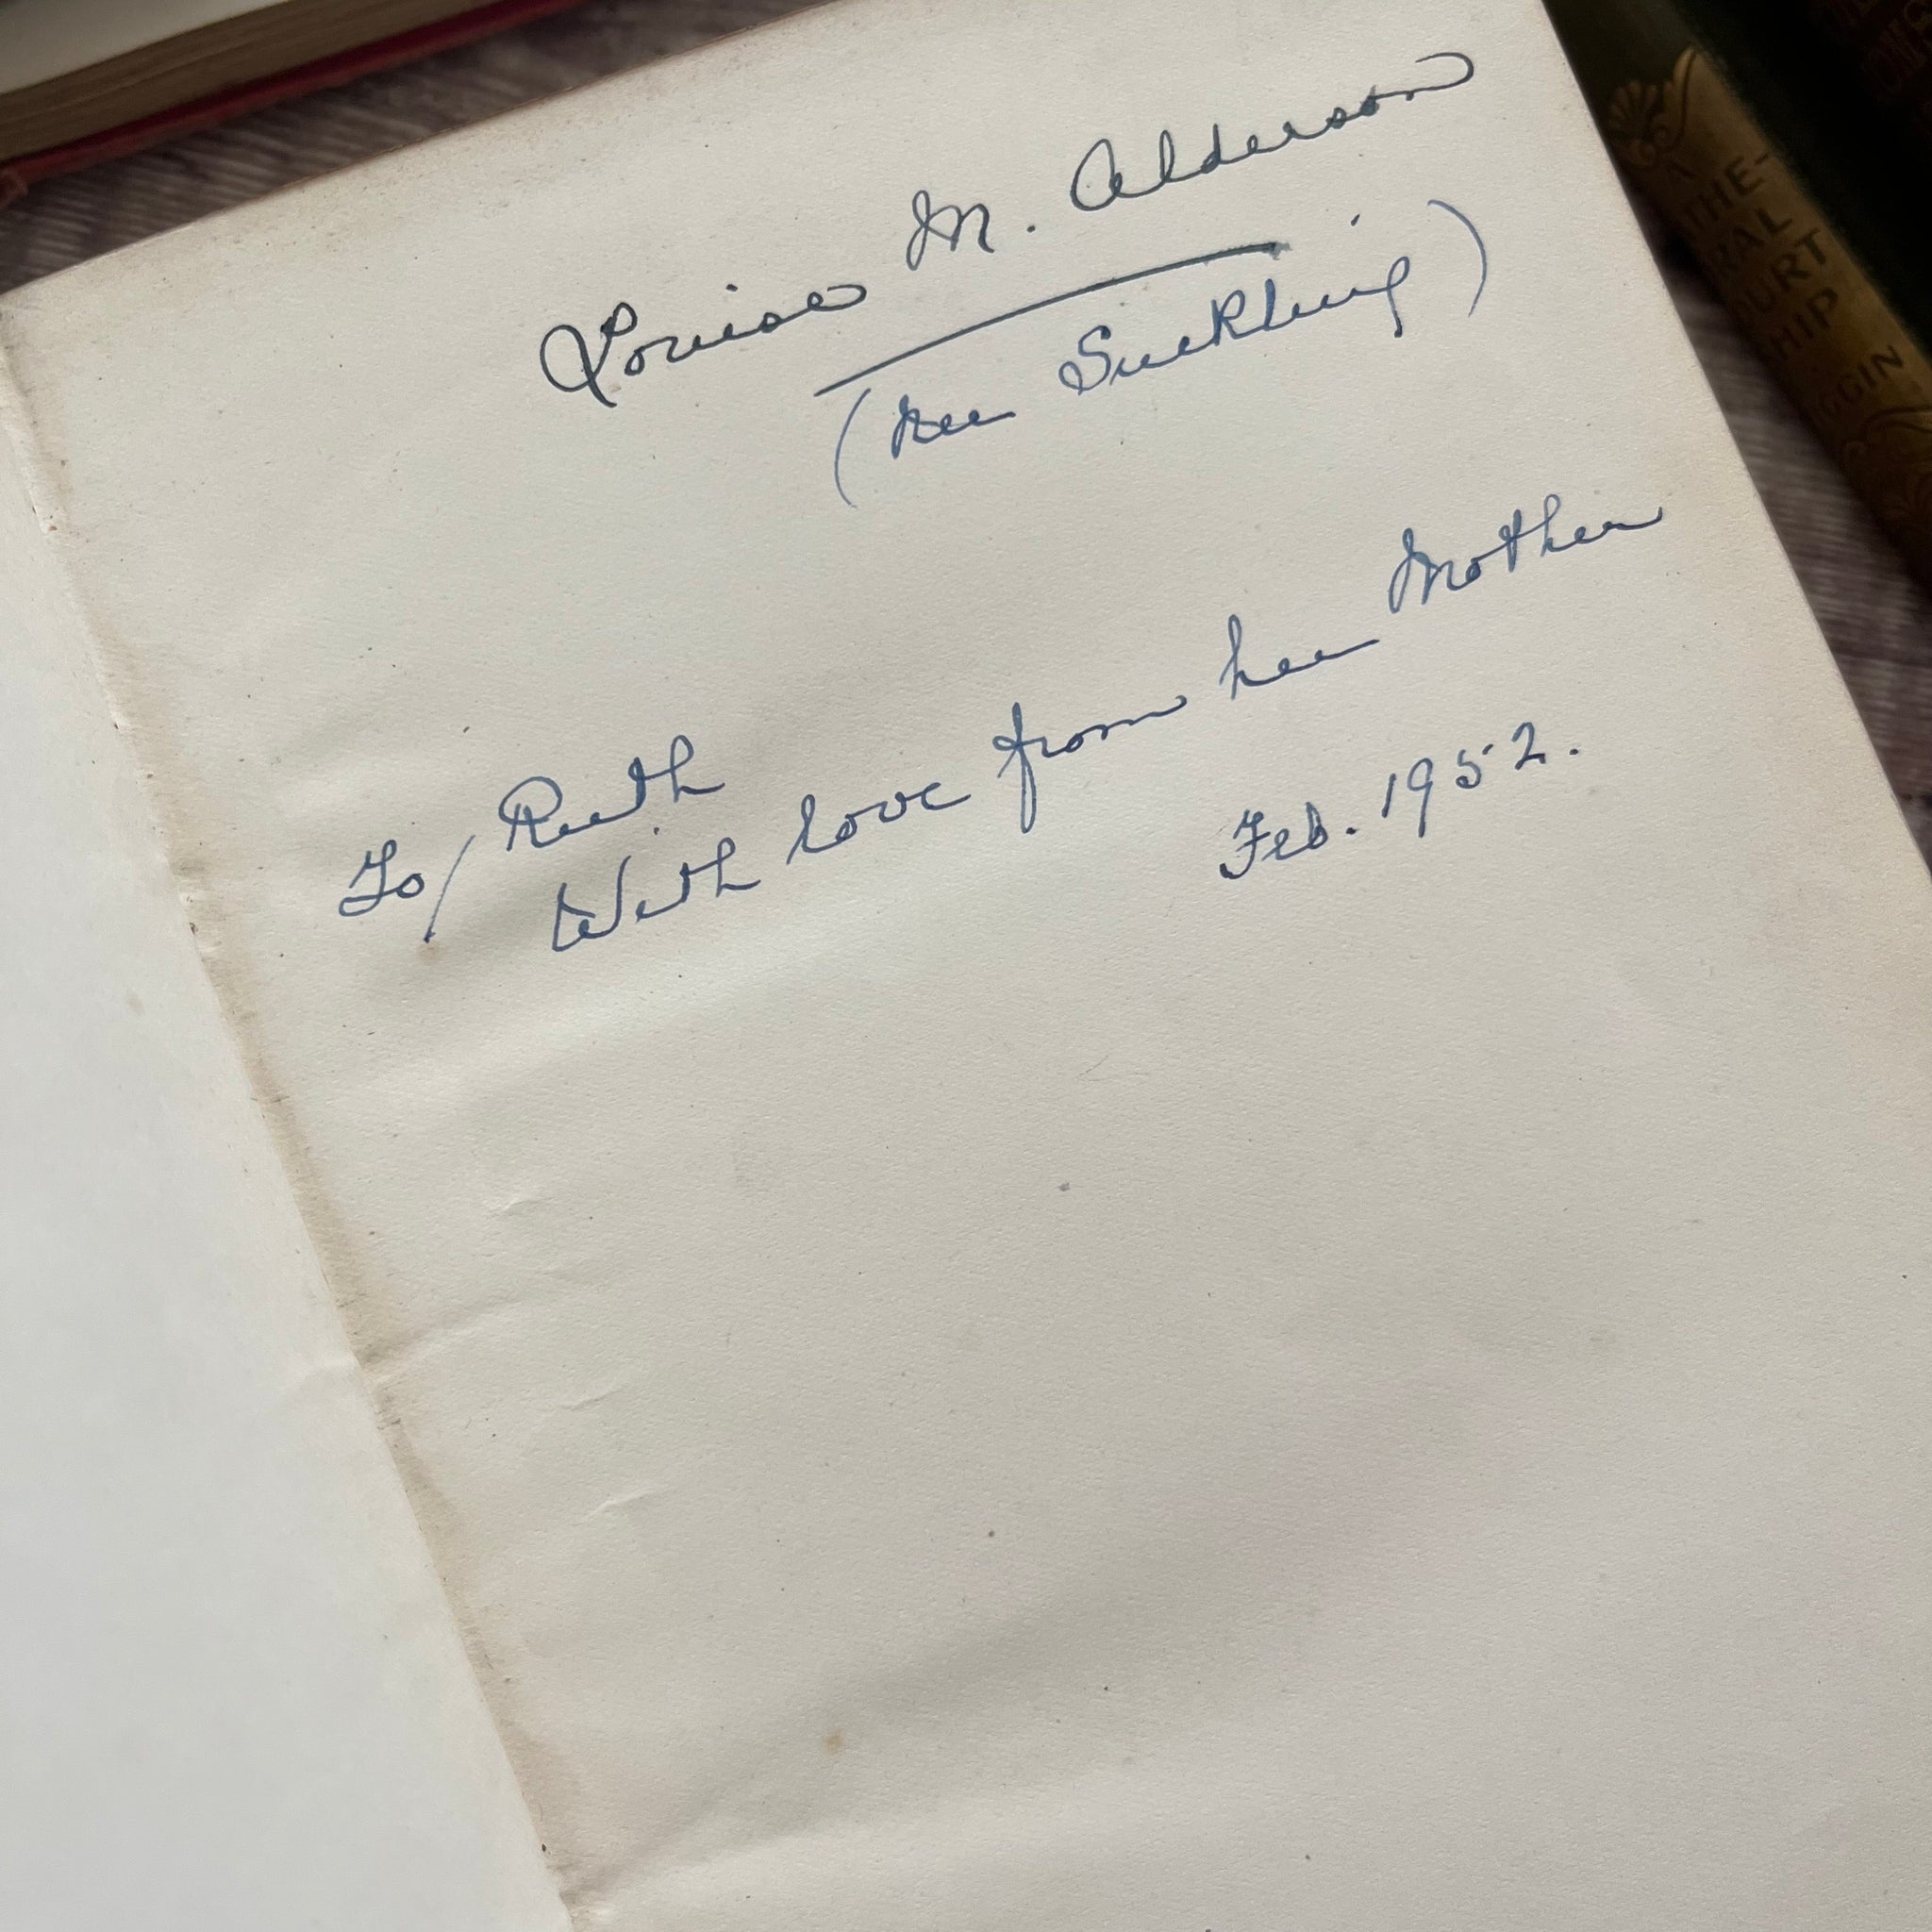 Louise M. Alderson
(nee Suckling)
To/ Ruth
With love from her Mother
Feb. 1952.
A
THE-
RAL
OURT
SHIP
GGIN